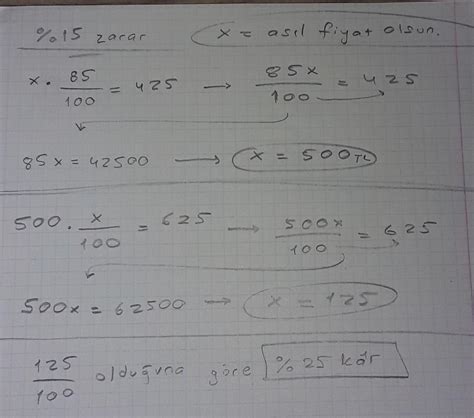 %15 zarar x = asıl fiyat olsun.
x · 85/100 = 425 → 85x/100 = 425
85x = 42500 → x = 500 TL
500 · x/100 = 625 → 500x/100 = 625
500x = 62500 → x = 125
125/100 olduğuna göre %25 kâr